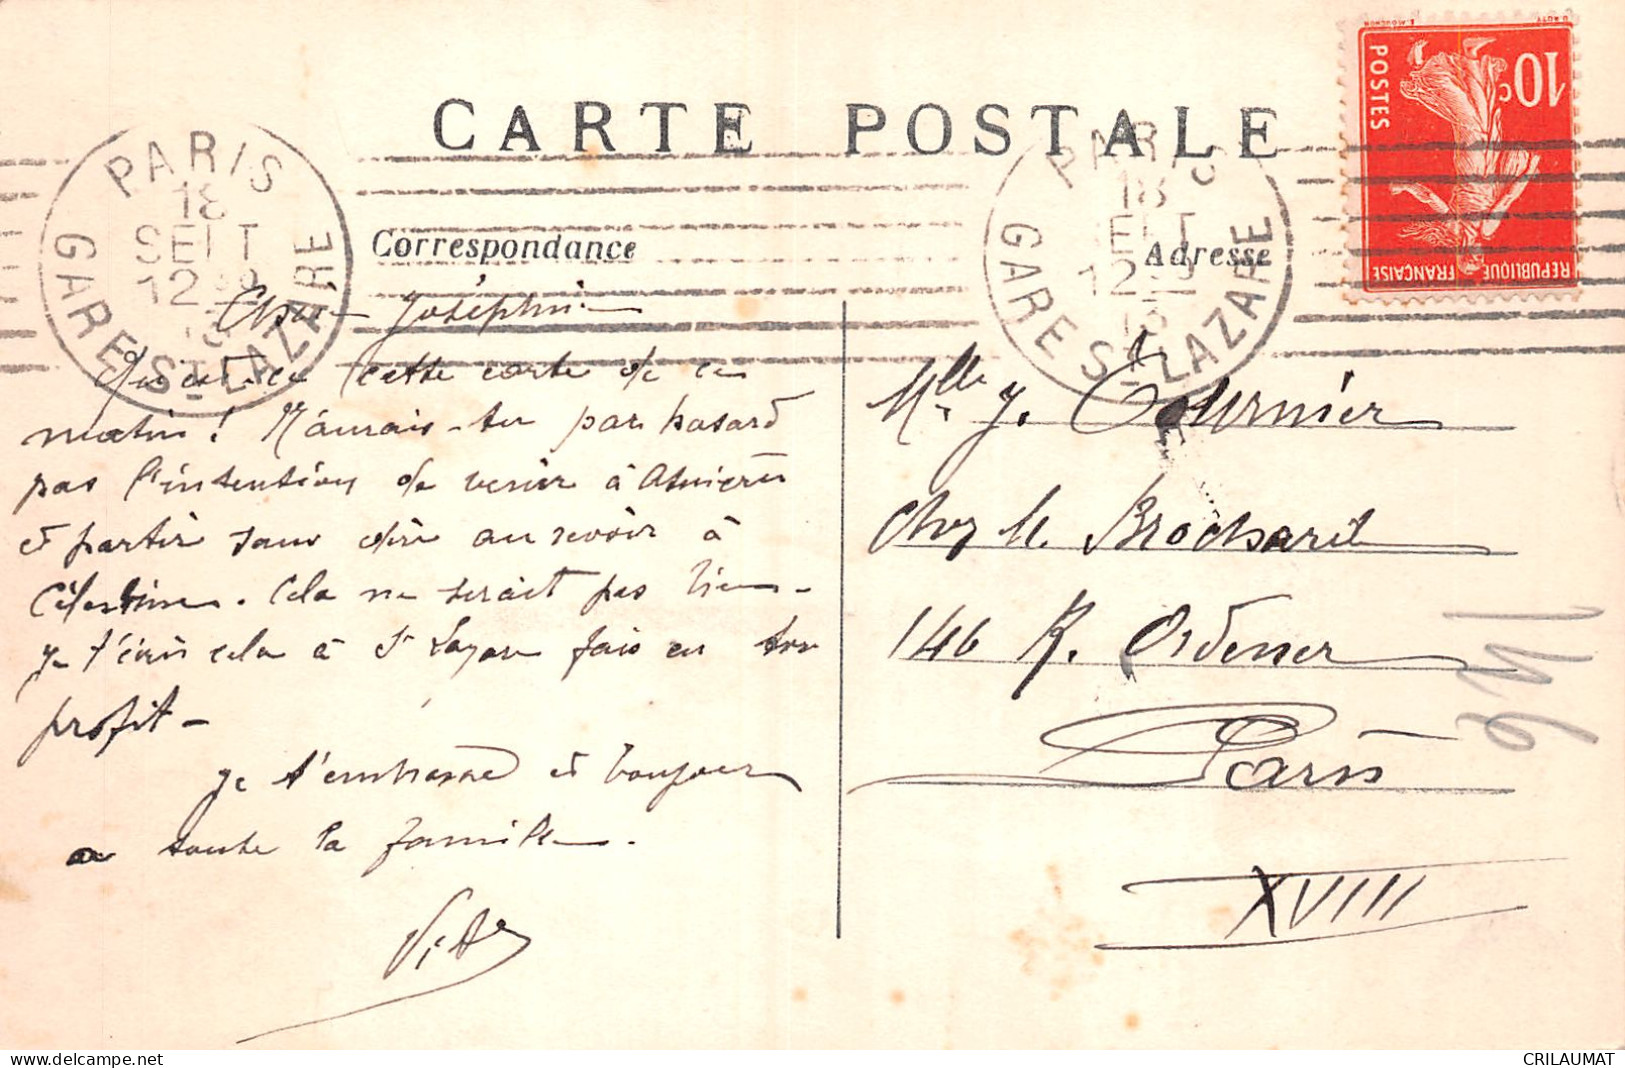 CARTE POSTALE
Correspondance
Adresse
PARIS
18
SEPT
12
GARE ST-LAZARE
PARIS
18
SEPT
12
13
GARE ST-LAZARE
10c
POSTES
REPUBLIQUE
FRANÇAISE
Chère Joséphine
Qu'est-ce cette carte de ce
matin! N'aurais-tu par hasard
pas l'intention de venir à Asnières
et partir sans dire au revoir à
Célestine. Cela ne serait pas bien -
je t'écris cela à St Lazare fais en ton
profit -
Je t'embrasse et bonjour
a toute la famille.
Mlle J. Tournier
Chez M. Brochard
146 R. Ordener
Paris
XVIII
CRILAUMAT